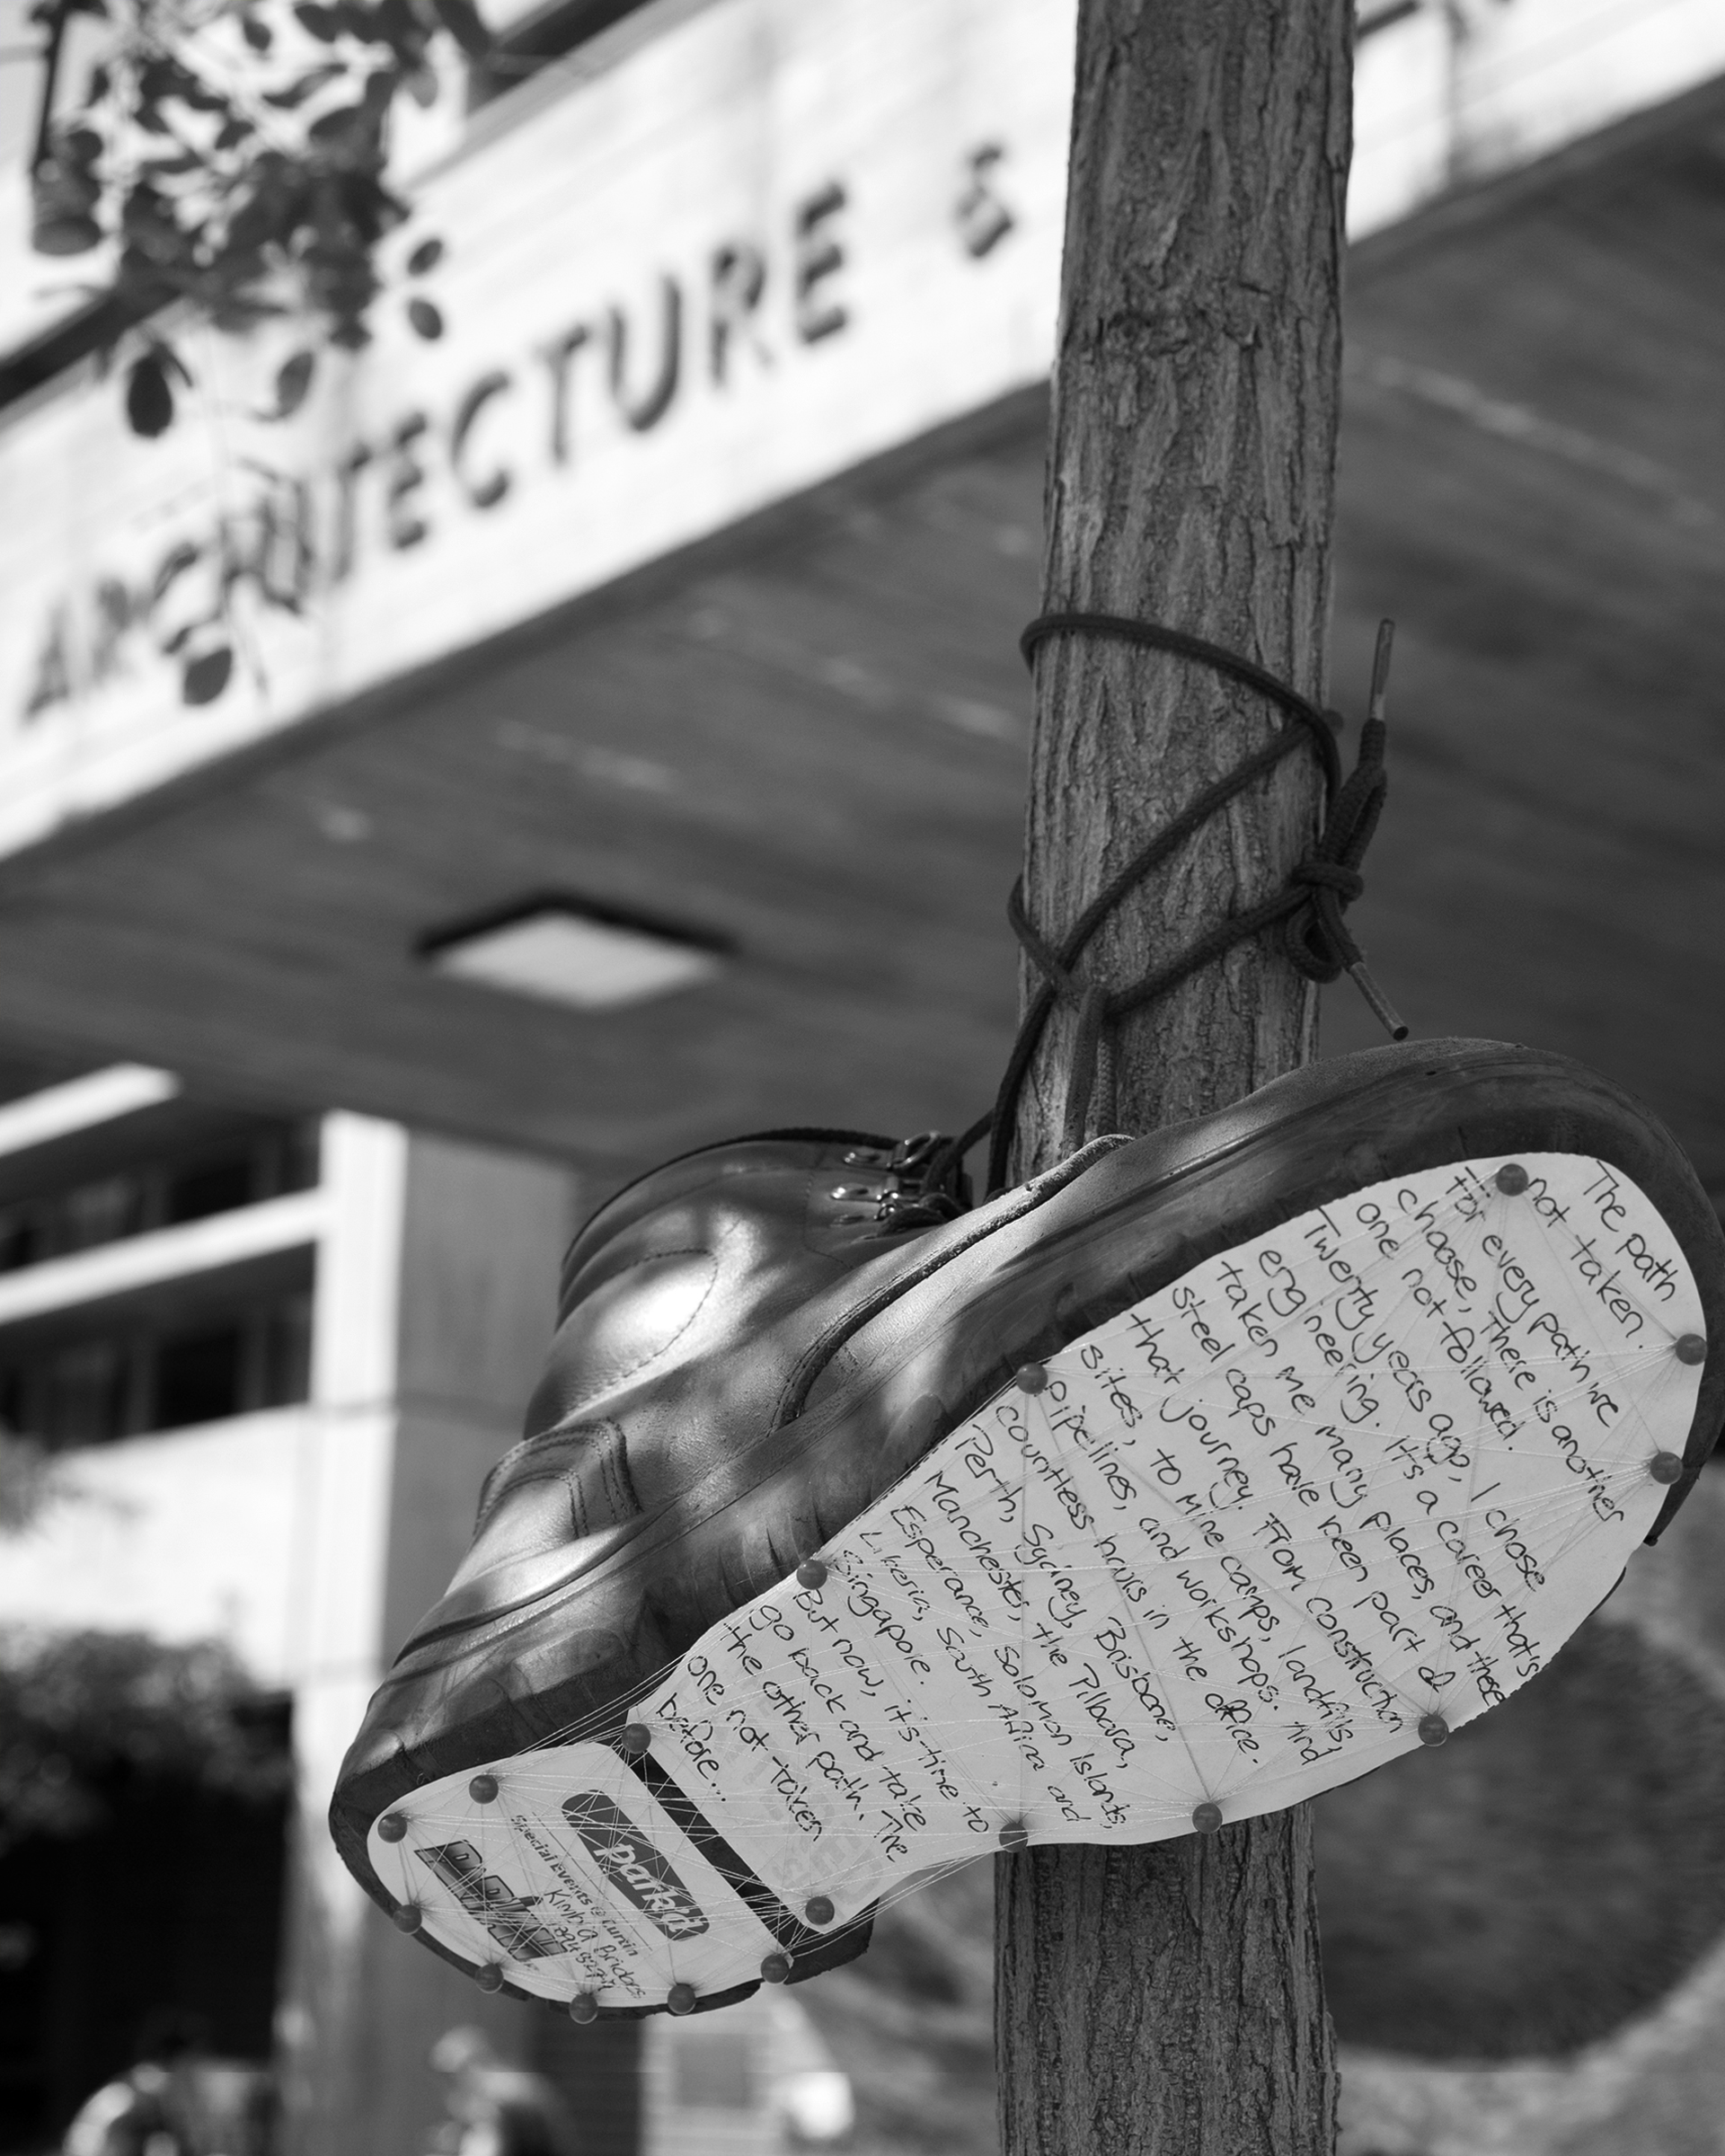 ARCHITECTURE &
The path
not taken.
For every path we
choose, there is another
one not followed.
Twenty years ago, I chose
engineering. It's a career that's
taken me many places, and these
steel caps have been part of
that journey. From construction
sites, to mine camps, landfills,
pipelines, and workshops. And
countless hours in the office.
Perth, Sydney, Brisbane,
Manchester, the Pilbara,
Esperance, Solomon Islands,
Liberia, South Africa and
Singapore.
But now, it's time to
go back and take
the other path. The
one not taken
before...
parkit
Special Events @ Curtin
Kimba Bridges